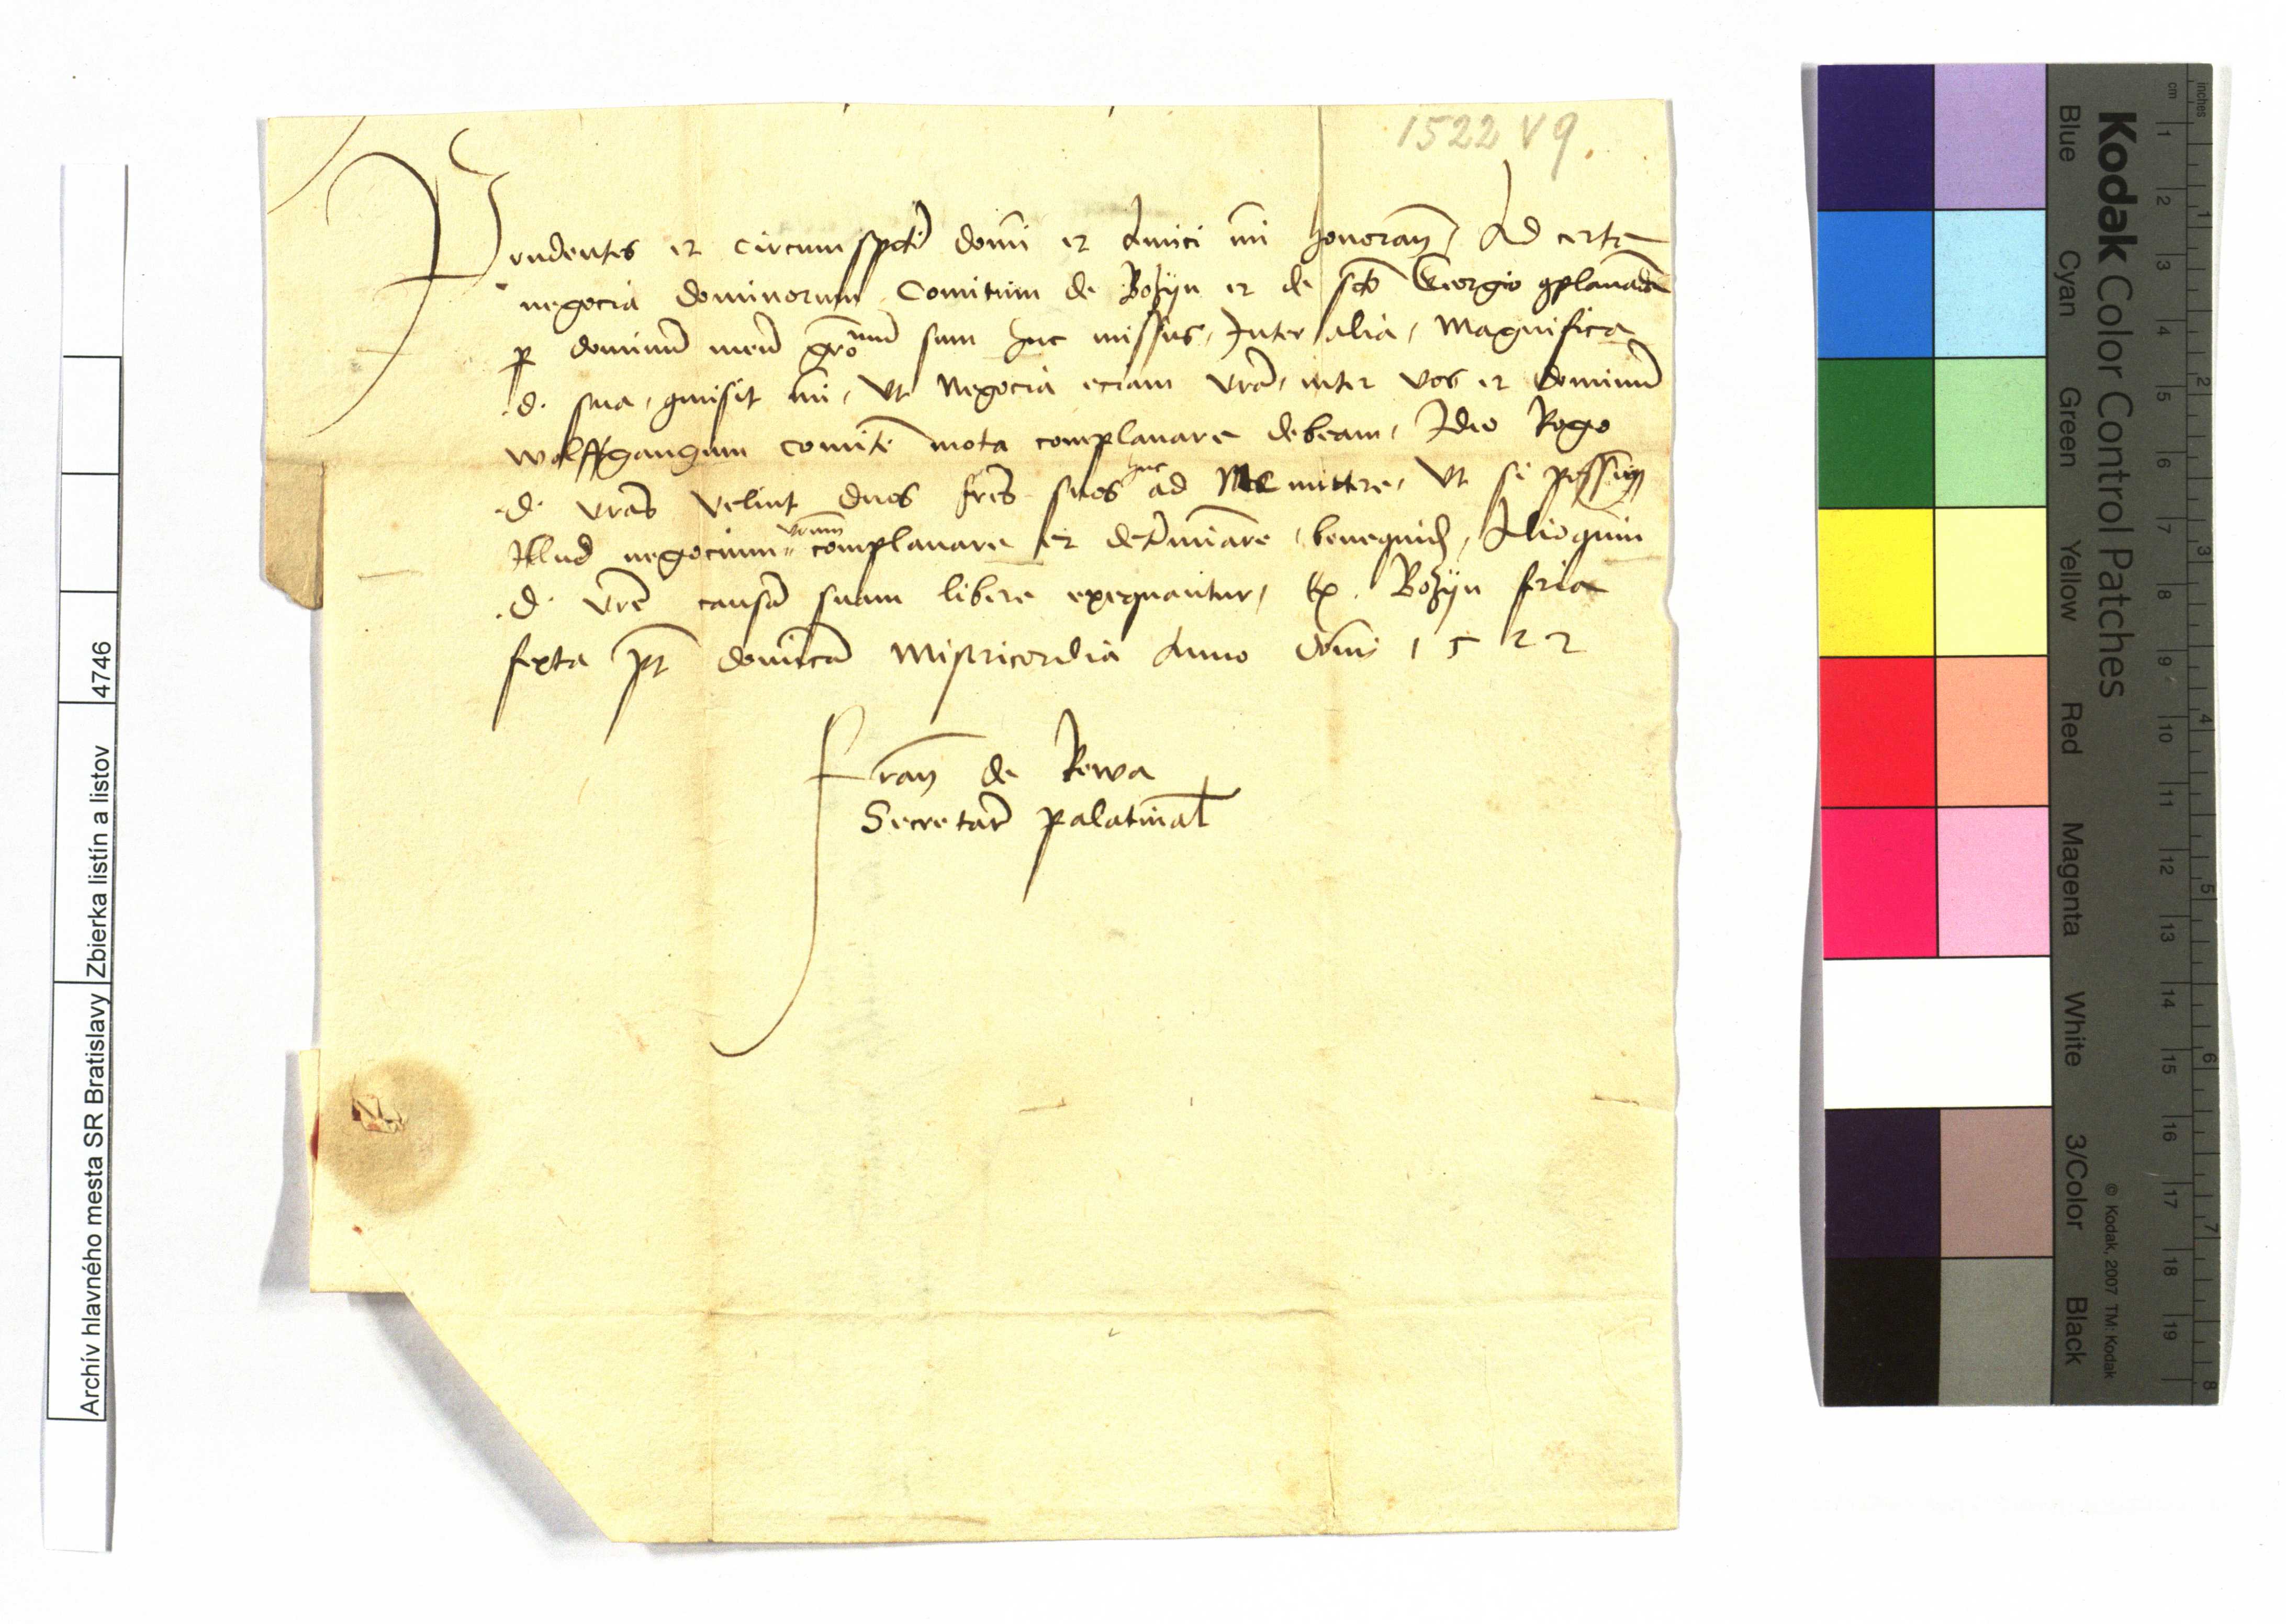 1522 V 9.
Prudentes et circumspecti domini et Amici mi honoran Ad certa
negocia dominorum Comitum de Bozyn et de scto Georgio complananda
per dominum meum grosum sum huc missus, Inter alia, Magnifica
.d. sua, commisit mi, Ut Negocia eciam vra, inter vos et dominum
Wolffgangum comite mota complanare debeam, Ideo Rogo
.d. vras velint duos fres suos huc ad Me mittere, Ut si possum
Illud negocium vrum complanare et determinare, benequid, Alioquin
.d. vre causa suam libere exequantur, Ex Bozyn feria
sexta post dominica Misericordia Anno domi 1522
Fran de Rewa
Secretar palatinal
Archív hlavného mesta SR Bratislavy Zbierka listín a listov 4746
Kodak Color Control Patches
Blue Cyan Green Yellow Red Magenta White 3/Color Black
© Kodak, 2007 TM: Kodak
inches 1 2 3 4 5 6 7 8
cm 1 2 3 4 5 6 7 8 9 10 11 12 13 14 15 16 17 18 19